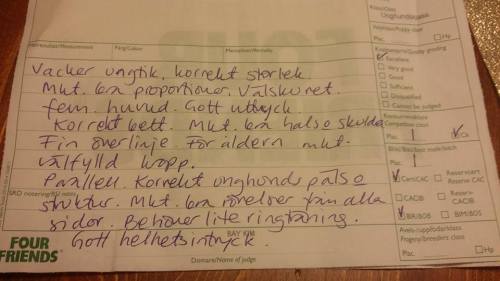 Klass/Class
Unghundsklass
Valpklass/Puppy class
Plac.
Hp
Färg/Colour
Mentalitet/Mentality
Kvalitetspris/Quality grading
Excellent
Very good
Good
Sufficient
Disqualified
Cannot be judged
Vacker ungtik, korrekt storlek.
Mkt. bra proportioner. Välskuret.
fem. huvud. Gott uttryck
Korrekt bett. Mkt. bra hals o skuldra
Fin överlinje. För åldern mkt.
välfylld kropp.
Parallell. Korrekt unghundspäls o
struktur. Mkt. bra rörelser från alla
sidor. Behöver lite ringträning.
Gott helhetsintryck.
Konkurrensklass
Competition class
Plac.
Ck
Bästa tik/Best male/bitch
Plac.
Cert/CAC
Reservcert
Reserve CAC
CACIB
Reserv-
CACIB
BIR/BOB
BIM/BOS
Avels-/uppfödarklass
Progeny/breeders class
Plac.
Hp
BAY KIM
Domare/Name of judge
FOUR
FRIENDS